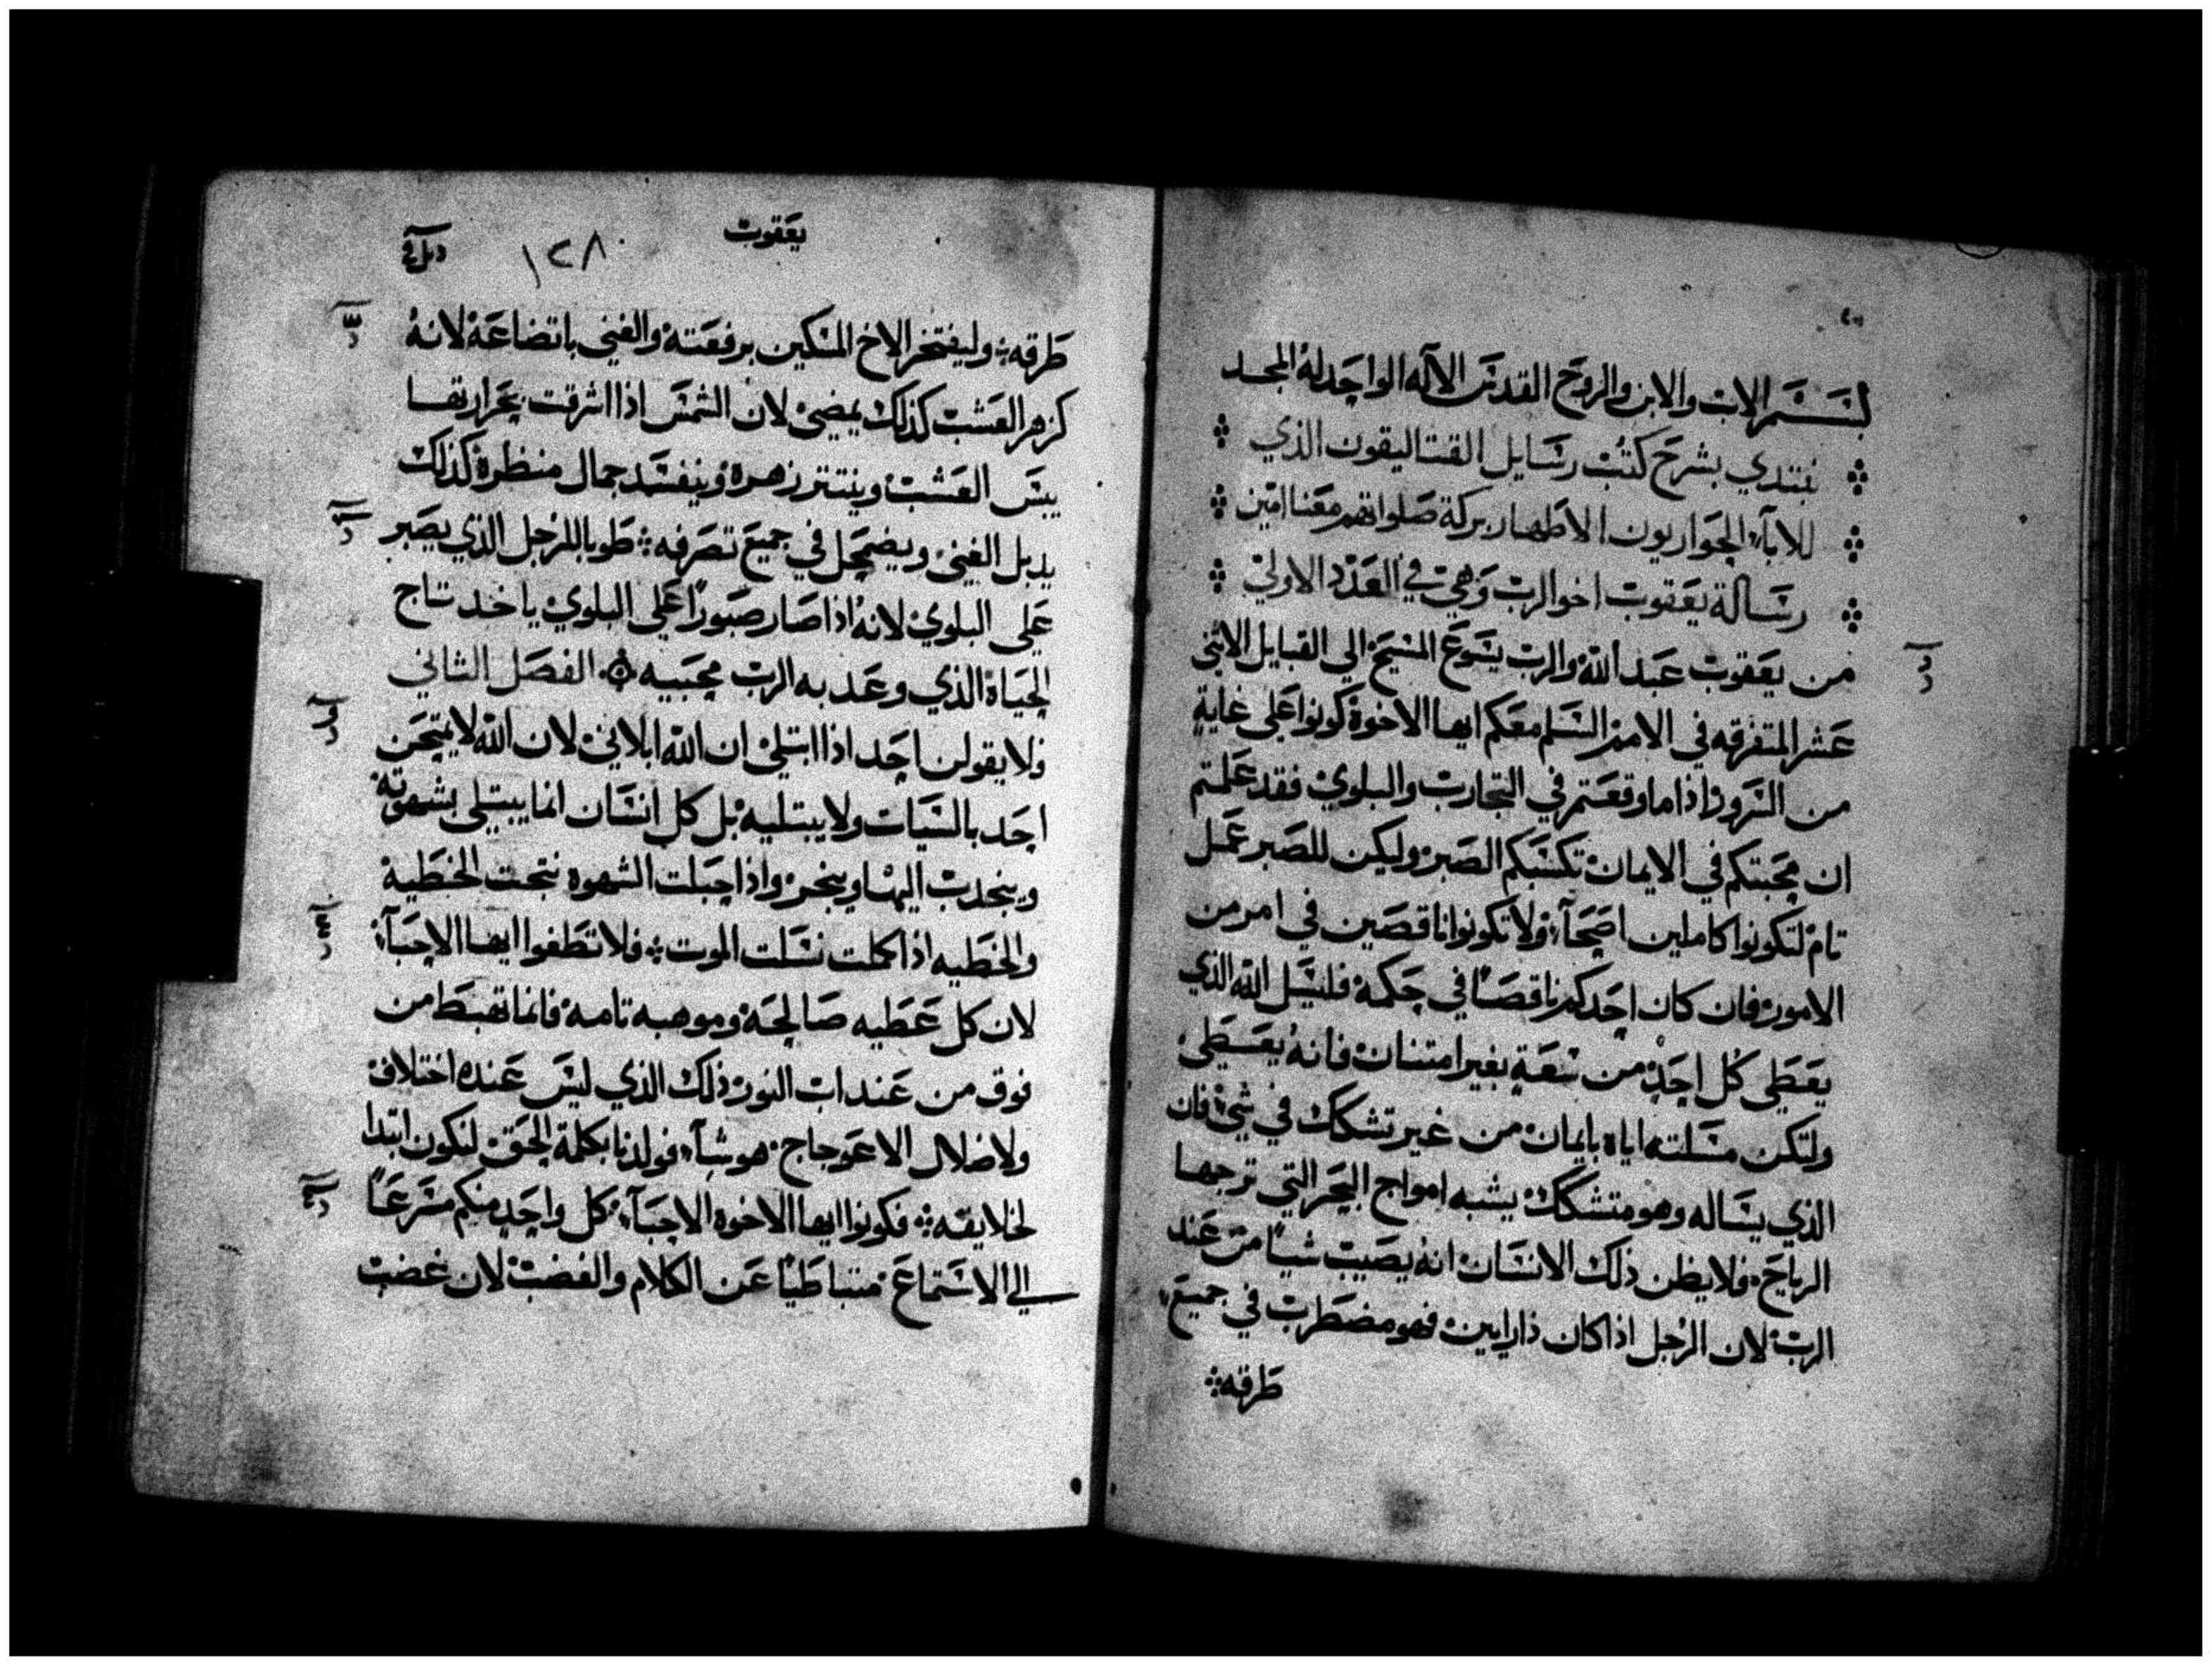 بسم الاب والابن والروح القدس الاله الواحد له المجد
نبتدي بشرح كتب رسايل القتاليقون الذي
للابآء الحواريون الاطهار بركة صلواتهم معنا امين
رسالة يعقوب اخو الرب وهي في العدد الاولي
من يعقوب عبد الله والرب يسوع المسيح الي القبايل الاثني
عشر المتفرقه في الامم السلم معكم ايها الاخوة كونوا علي غاية
من السرور اذا ما وقعتم في التجارب والبلوي فقد علمتم
ان محبتكم في الايمان تكسبكم الصبر وليكن للصبر عمل
تام لتكونوا كاملين اصحآء ولا تكونوا ناقصين في امر من
الامور فان كان احدكم ناقصًا في حكمة فليسل الله الذي
يعطي كل احد من سعة بغير امتنان فانه يعطي
ولتكن مسلته اياه بايمان من غير تشكك في شي فان
الذي يساله وهو متشكك يشبه امواج البحر التي ترجها
الرياح فلا يظن ذلك الانسان انه يصيب شيًا من عند
الرب لان الرجل اذا كان ذا رايين فهو مضطرب في جميع
طرقه
يعقوب
١٢٨
طرقه وليفتخر الاخ المسكين برفعته والغني باتضاعه لانه
كزهر العشب كذلك يمضي لان الشمس اذا اشرقت بحرارتها
يبس العشب وينتثر زهره ويفسد جمال منظره كذلك
يدبل الغني ويضمحل في جميع تصرفه طوبا للرجل الذي يصبر
علي البلوي لانه اذا صار صبورًا علي البلوي ياخد تاج
الحياة الذي وعد به الرب محبيه الفصل الثاني
فلا يقولن احد اذا ابتلي ان الله ابلاني لان الله لا يمتحن
احد بالسيات ولا يبتليه بل كل انسان انما يبتلي بشهوته
وينجدب اليها وينخدع واذا حبلت الشهوه نتجت الخطيه
والخطيه اذا كملت نسلت الموت فلا تطغوا ايها الاحبآء
لان كل عطيه صالحة وموهبه تامه فانما تهبط من
فوق من عند اب النور ذلك الذي ليس عنده اختلاف
ولا ضلال الاعوجاج هو شآء فولدنا بكلمة الحق لنكون ابتدا
لخلايقه فكونوا ايها الاخوه الاحبآء كل واحد منكم مسرعًا
الي الاستماع متباطيًا عن الكلام والغضب لان غضب